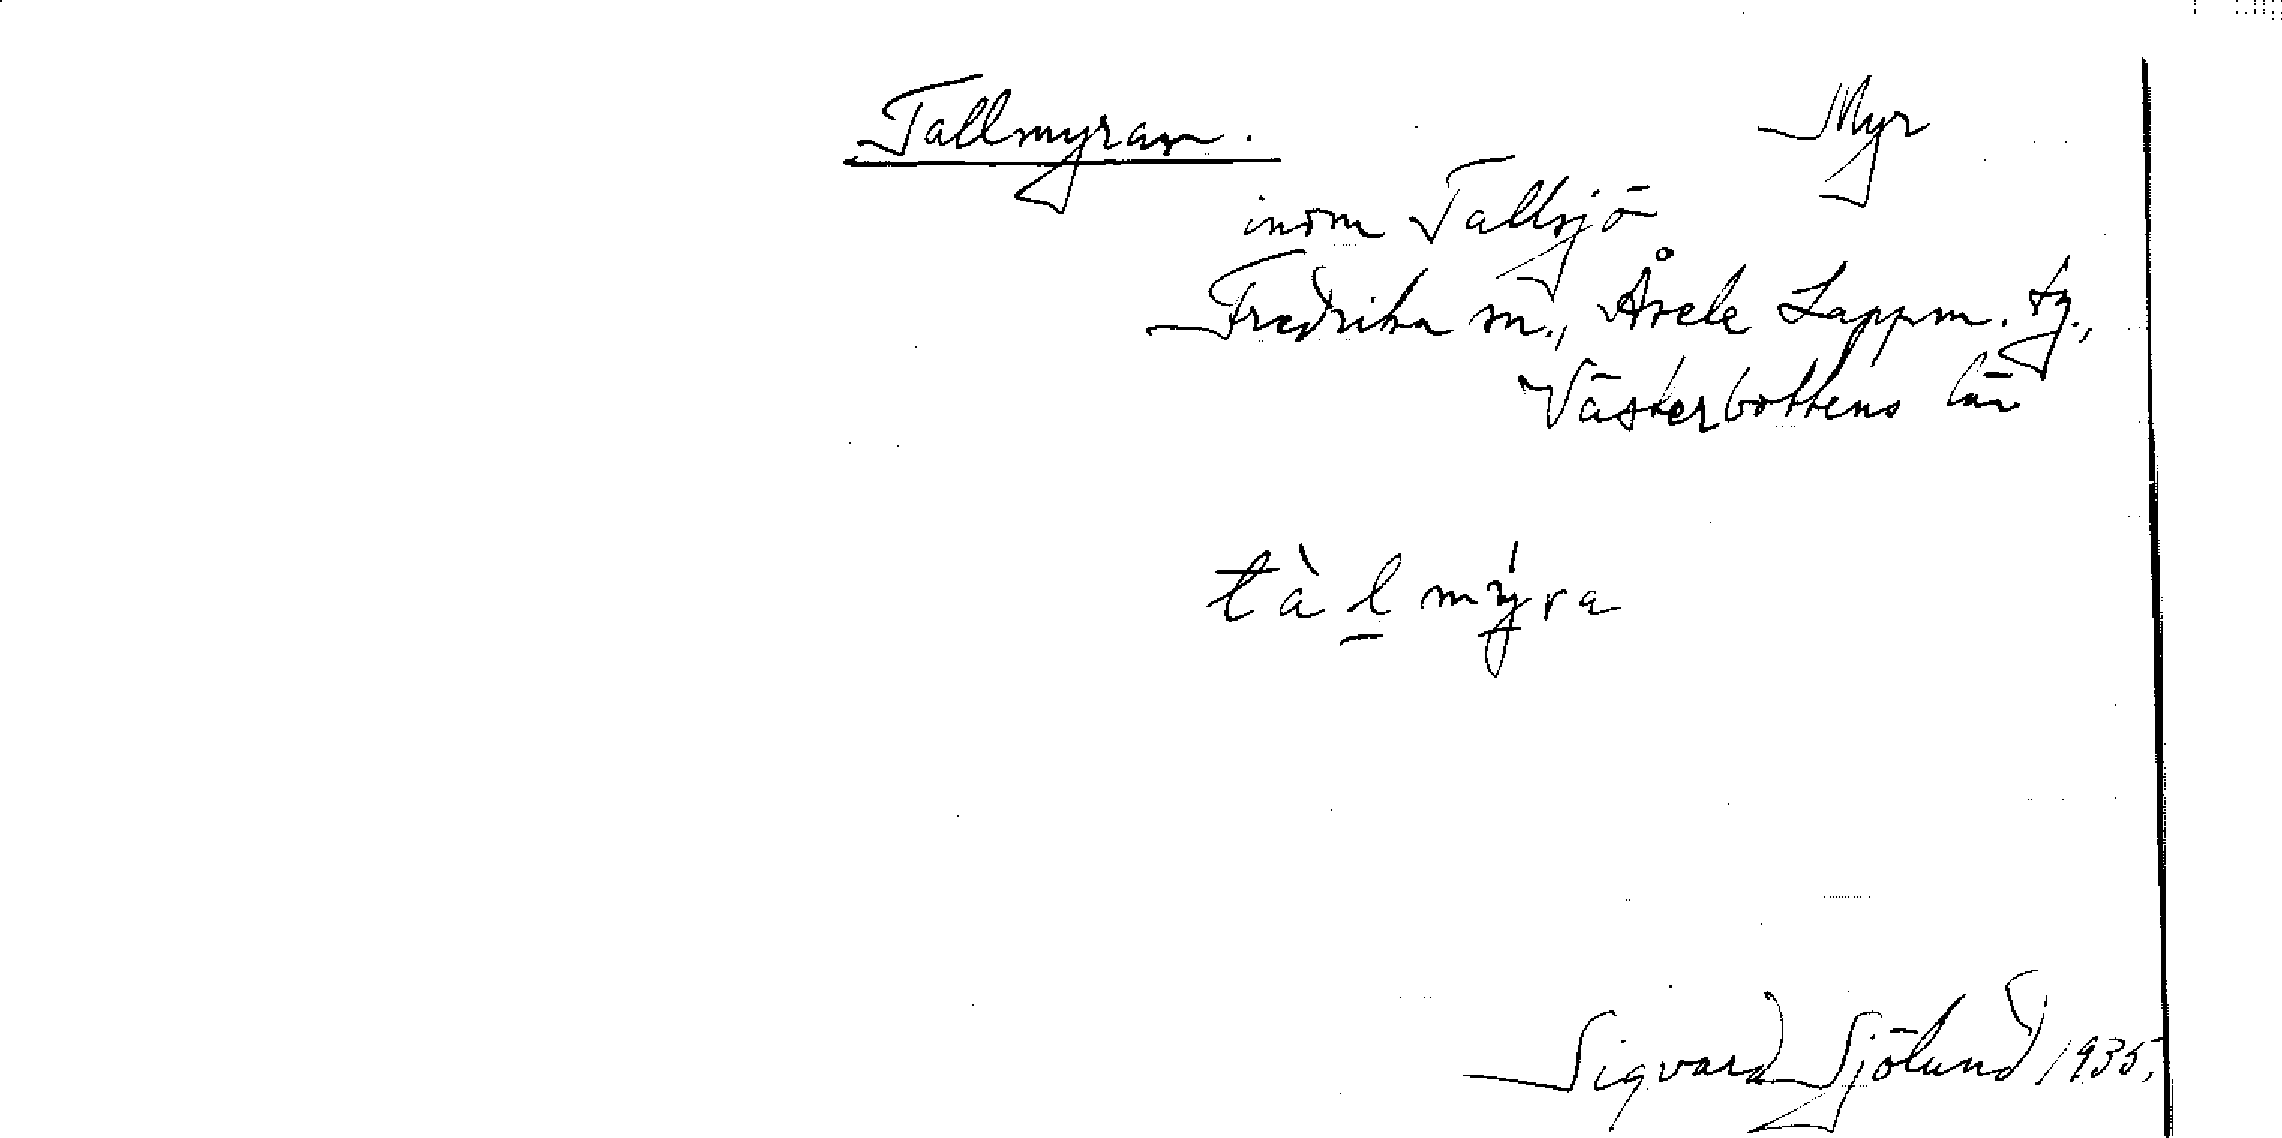 Tallmyran. Myr
inom Tallsjö
Fredrika sn., Åsele Lappm. tg.,
Västerbottens län
tàl̲mýra
Sigvard Sjölund 1935.